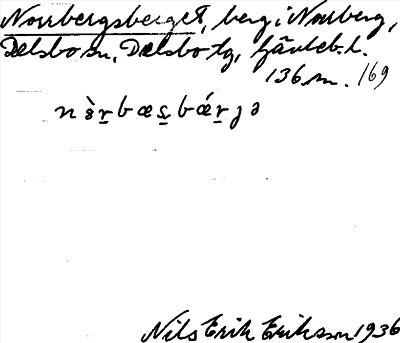 Norrbergsberget, berg i Norrberg,
Delsbo sn, Delsbo tg, Gävleb. l.
136 m. 169
nòr̠bæs̠bǽr̠jə
Nils Erik Eriksson 1936